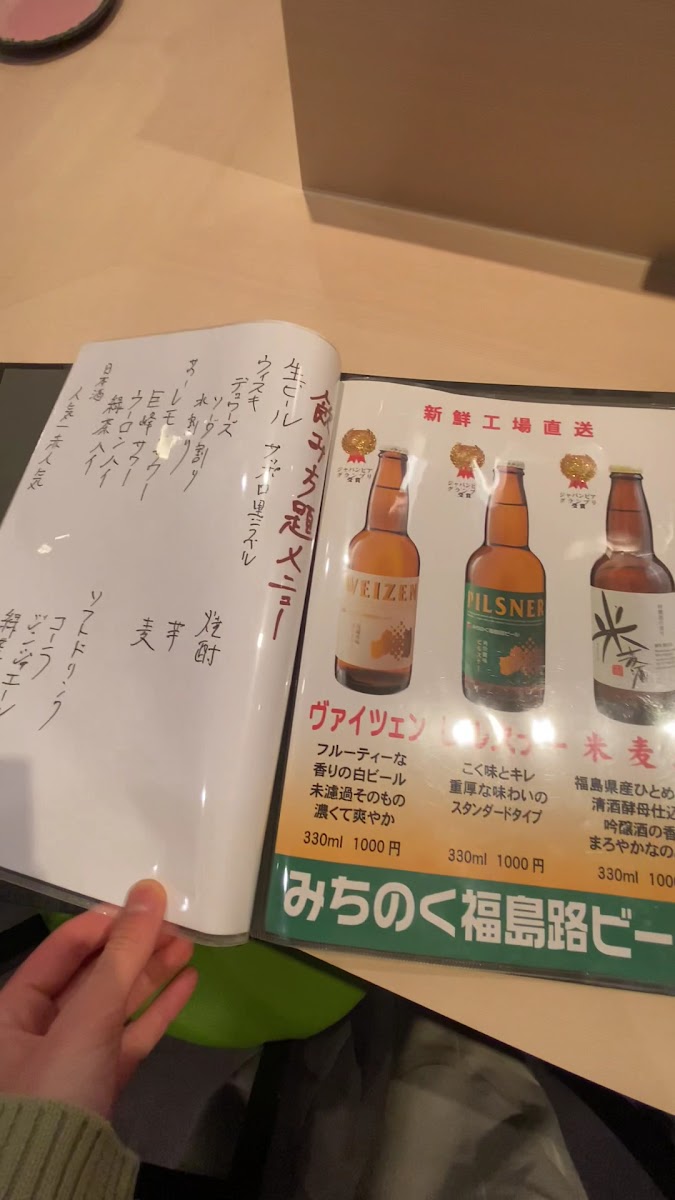 飲み放題メニュー
生ビール サッポロ黒ラベル
ウィスキー
デュワーズ
ソーダ割り
水割り
サワー
レモンサワー
巨峰サワー
ウーロンハイ
緑茶ハイ
日本酒
人気一本人気
焼酎
芋
麦
ソフトドリンク
コーラ
ジンジャエール
新鮮工場直送
ジャパンビア
グランプリ
受賞
ジャパンビア
グランプリ
受賞
ジャパンビア
グランプリ
受賞
WEIZEN
PILSNER
米麦酒
ヴァイツェン
フルーティーな
香りの白ビール
未濾過そのもの
濃くて爽やか
330ml 1000円
ピルスナー
こく味とキレ
重厚な味わいの
スタンダードタイプ
330ml 1000円
米麦
福島県産ひとめ
清酒酵母仕込
吟醸酒の香
まろやかなの
330ml 100
みちのく福島路ビー